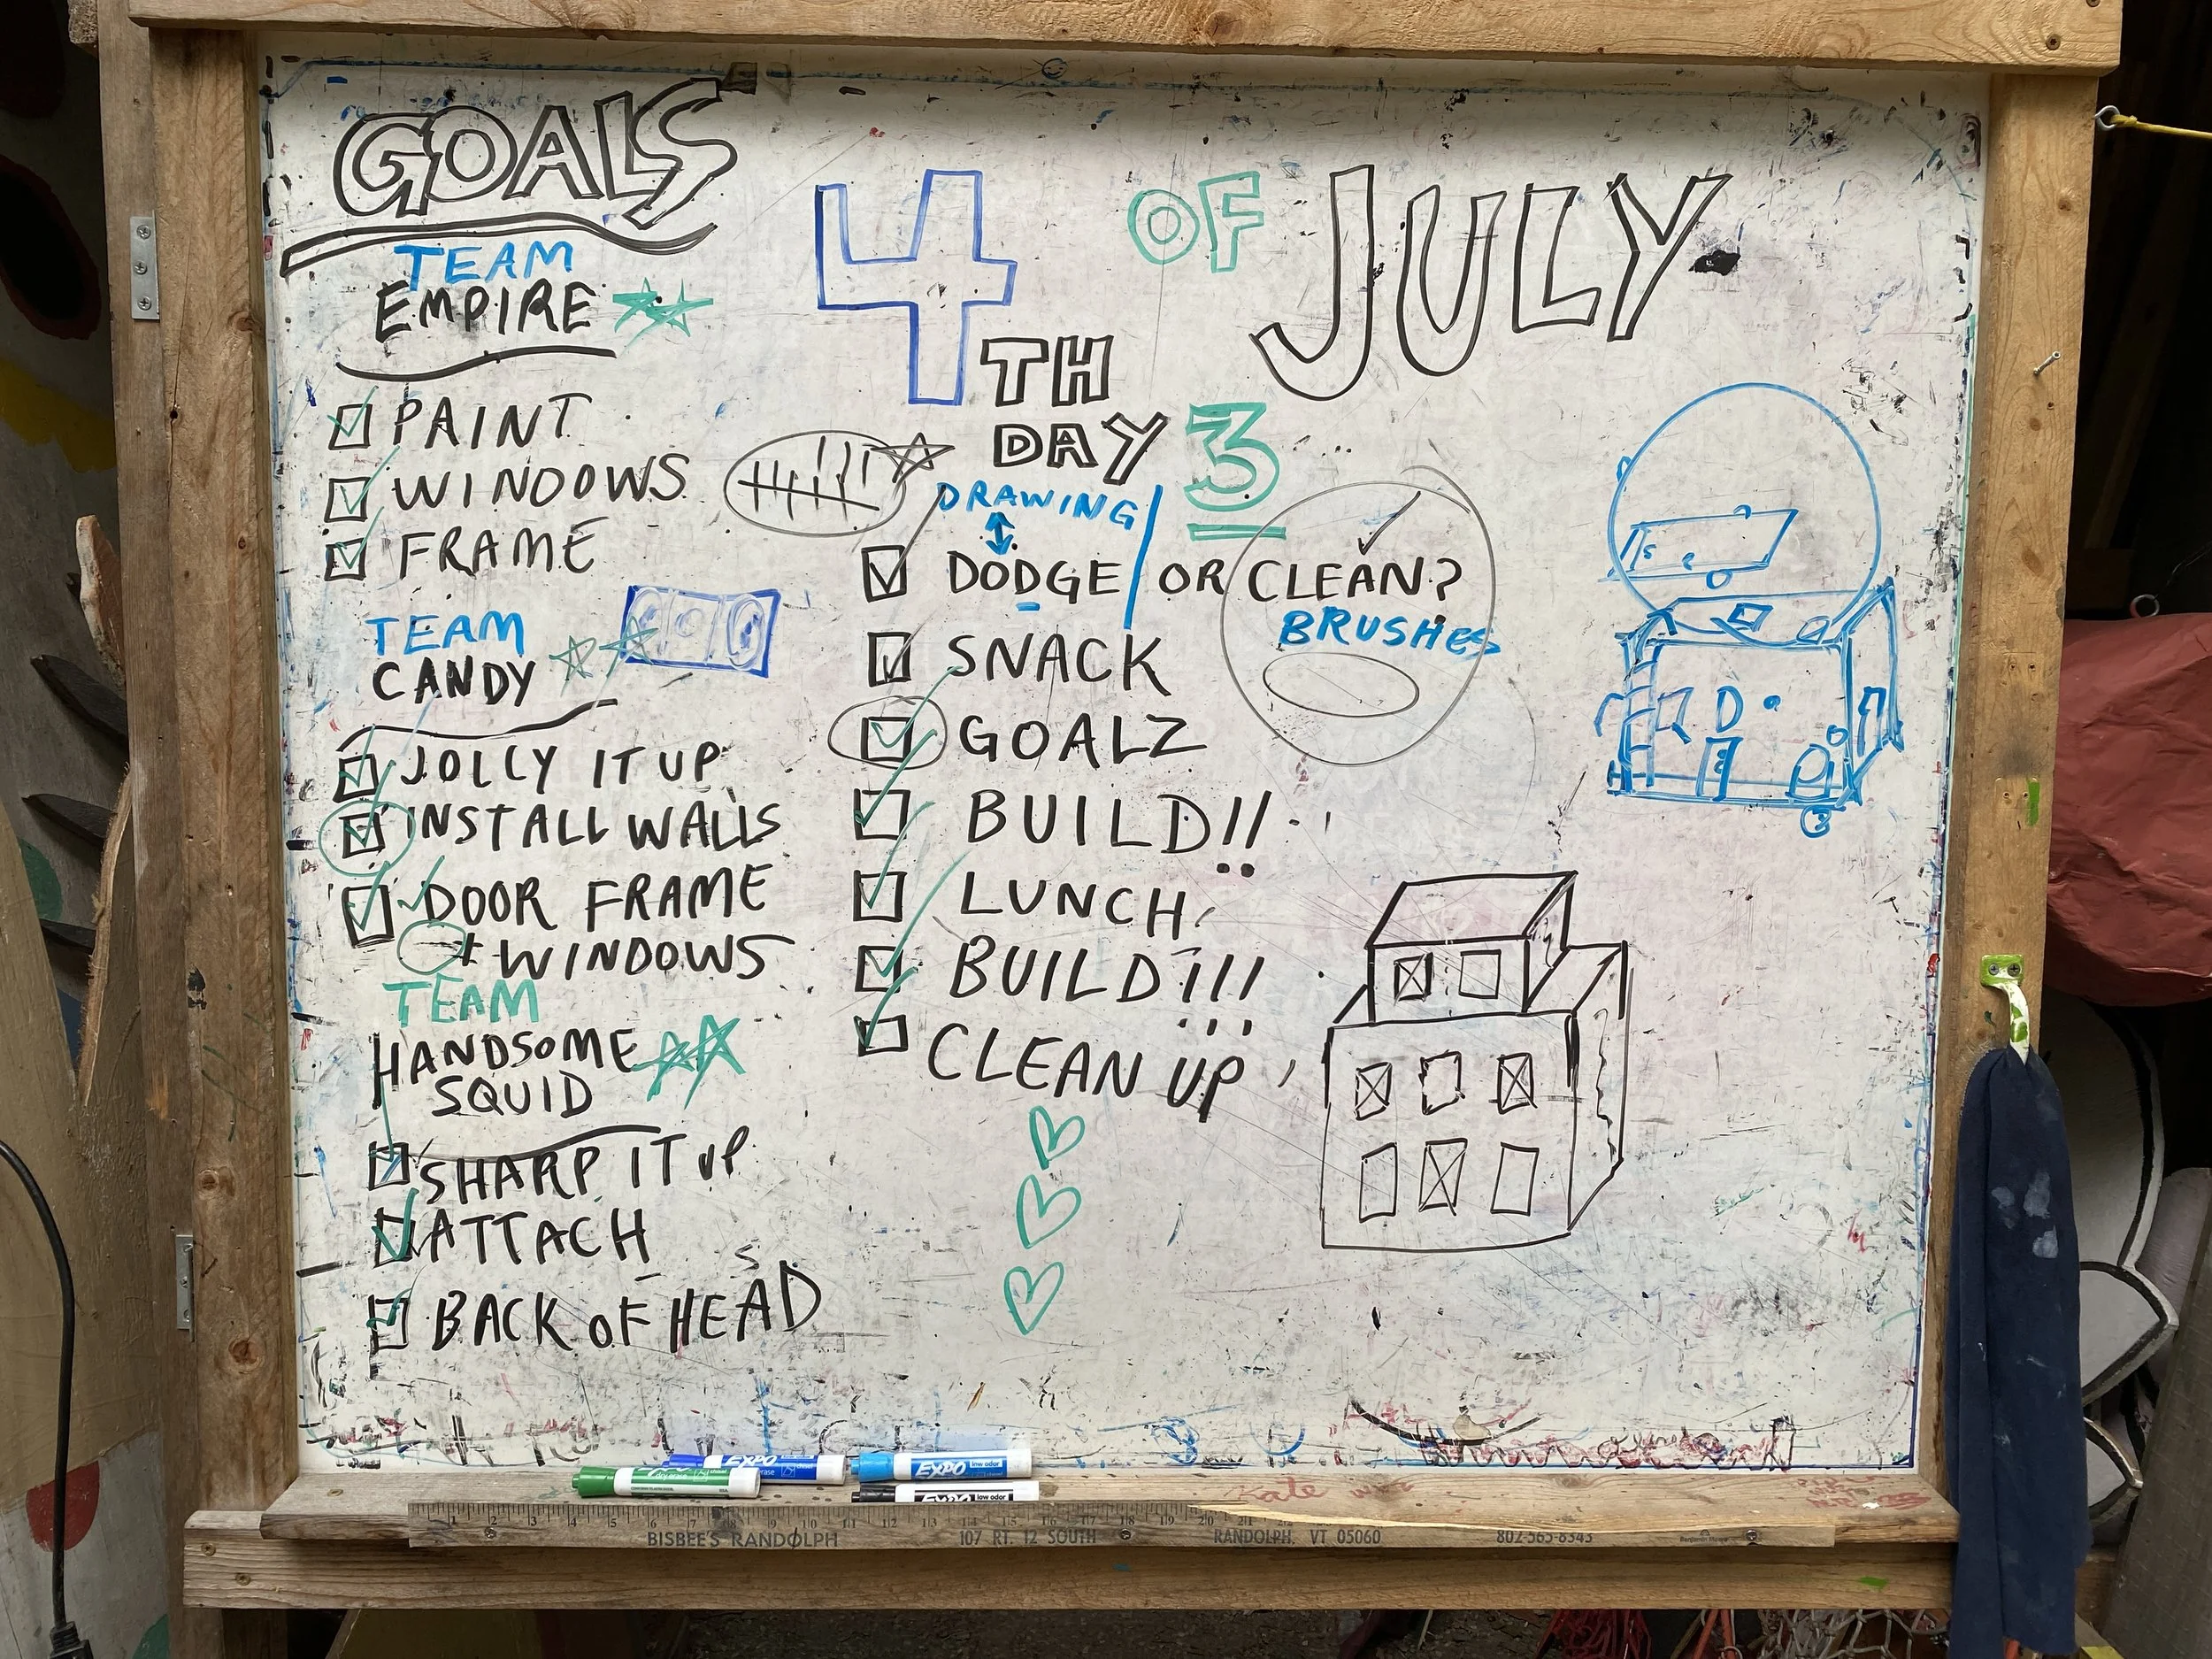 GOALS
TEAM
EMPIRE
PAINT
WINDOWS
FRAME
TEAM
CANDY
JOLLY IT UP
INSTALL WALLS
DOOR FRAME
+ WINDOWS
TEAM
HANDSOME
SQUID
SHARP IT UP
ATTACH
BACK OF HEAD
4TH OF JULY
DAY 3
DRAWING
DODGE / OR CLEAN?
BRUSHES
SNACK
GOALZ
BUILD!!
LUNCH
BUILD!!!
CLEAN UP
EXPO
EXPO low odor
EXPO low odor
1 2 3 4 5 6 7 8 9 10 11 12 13 14 15 16 17 18 19 20 21
BISBEE'S RANDOLPH 107 RT. 12 SOUTH RANDOLPH, VT 05060 802-565-8343